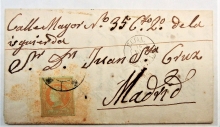 Calle Mayor Nº 35 Cto 2º de la
izquierda
Sr. Dn Juan Sta Cruz
Madrid